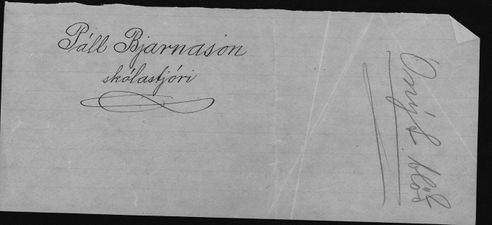 Páll Bjarnason
skólastjóri
Ónýt blöð